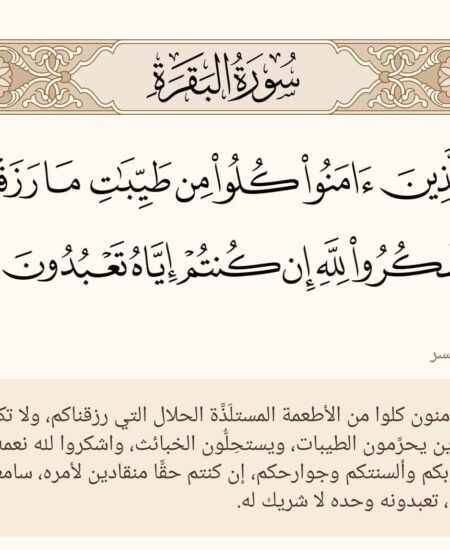 سُورَةُ البَقَرَةِ
ءَامَنُواْ كُلُواْ مِن طَيِّبَٰتِ مَا
لِلَّهِ إِن كُنتُمْ إِيَّاهُ تَعْبُدُونَ
كلوا من الأطعمة المستلَذَّة الحلال التي رزقناكم، ولا
يحرِّمون الطيبات، ويستحِلُّون الخبائث، واشكروا لله
وألسنتكم وجوارحكم، إن كنتم حقًّا منقادين لأمره،
، تعبدونه وحده لا شريك له.